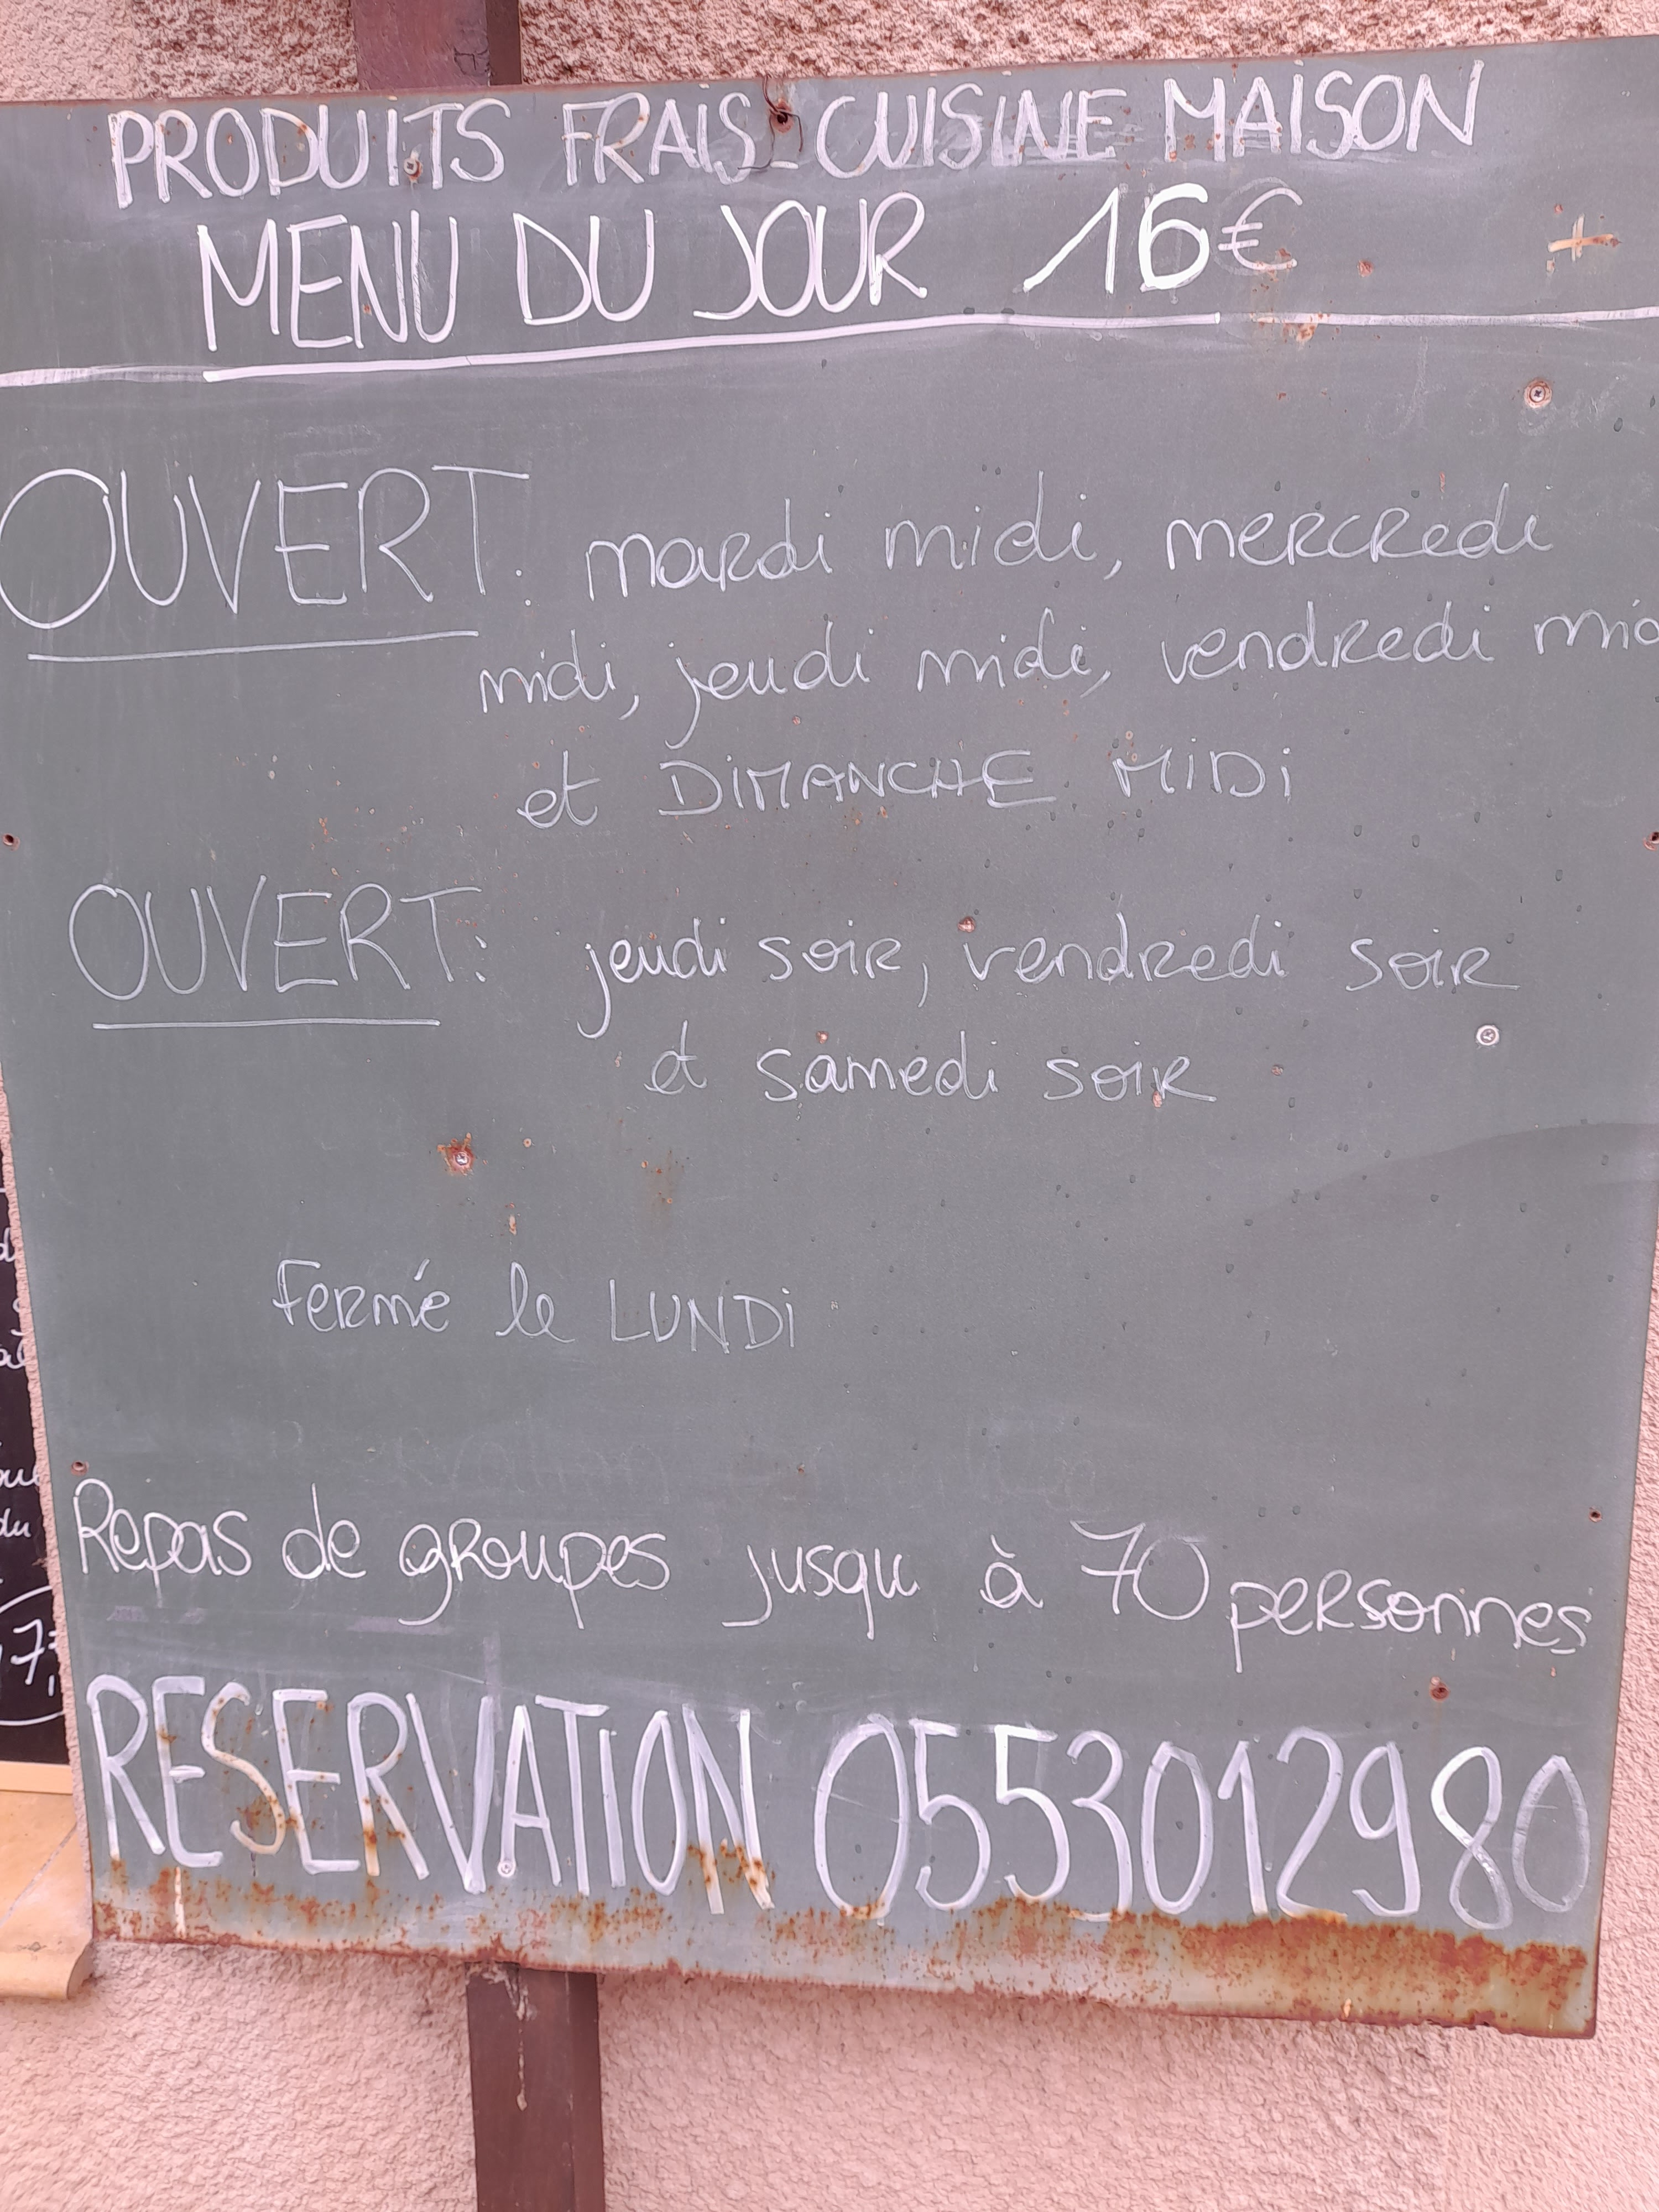 PRODUITS FRAIS_CUISINE MAISON
MENU DU JOUR 16€
OUVERT: mardi midi, mercredi
midi, jeudi midi, vendredi mid
et DIMANCHE MIDI
OUVERT: jeudi soir, vendredi soir
et samedi soir
Fermé le LUNDI
Repas de groupes jusqu à 70 personnes
RESERVATION 0553012980
du